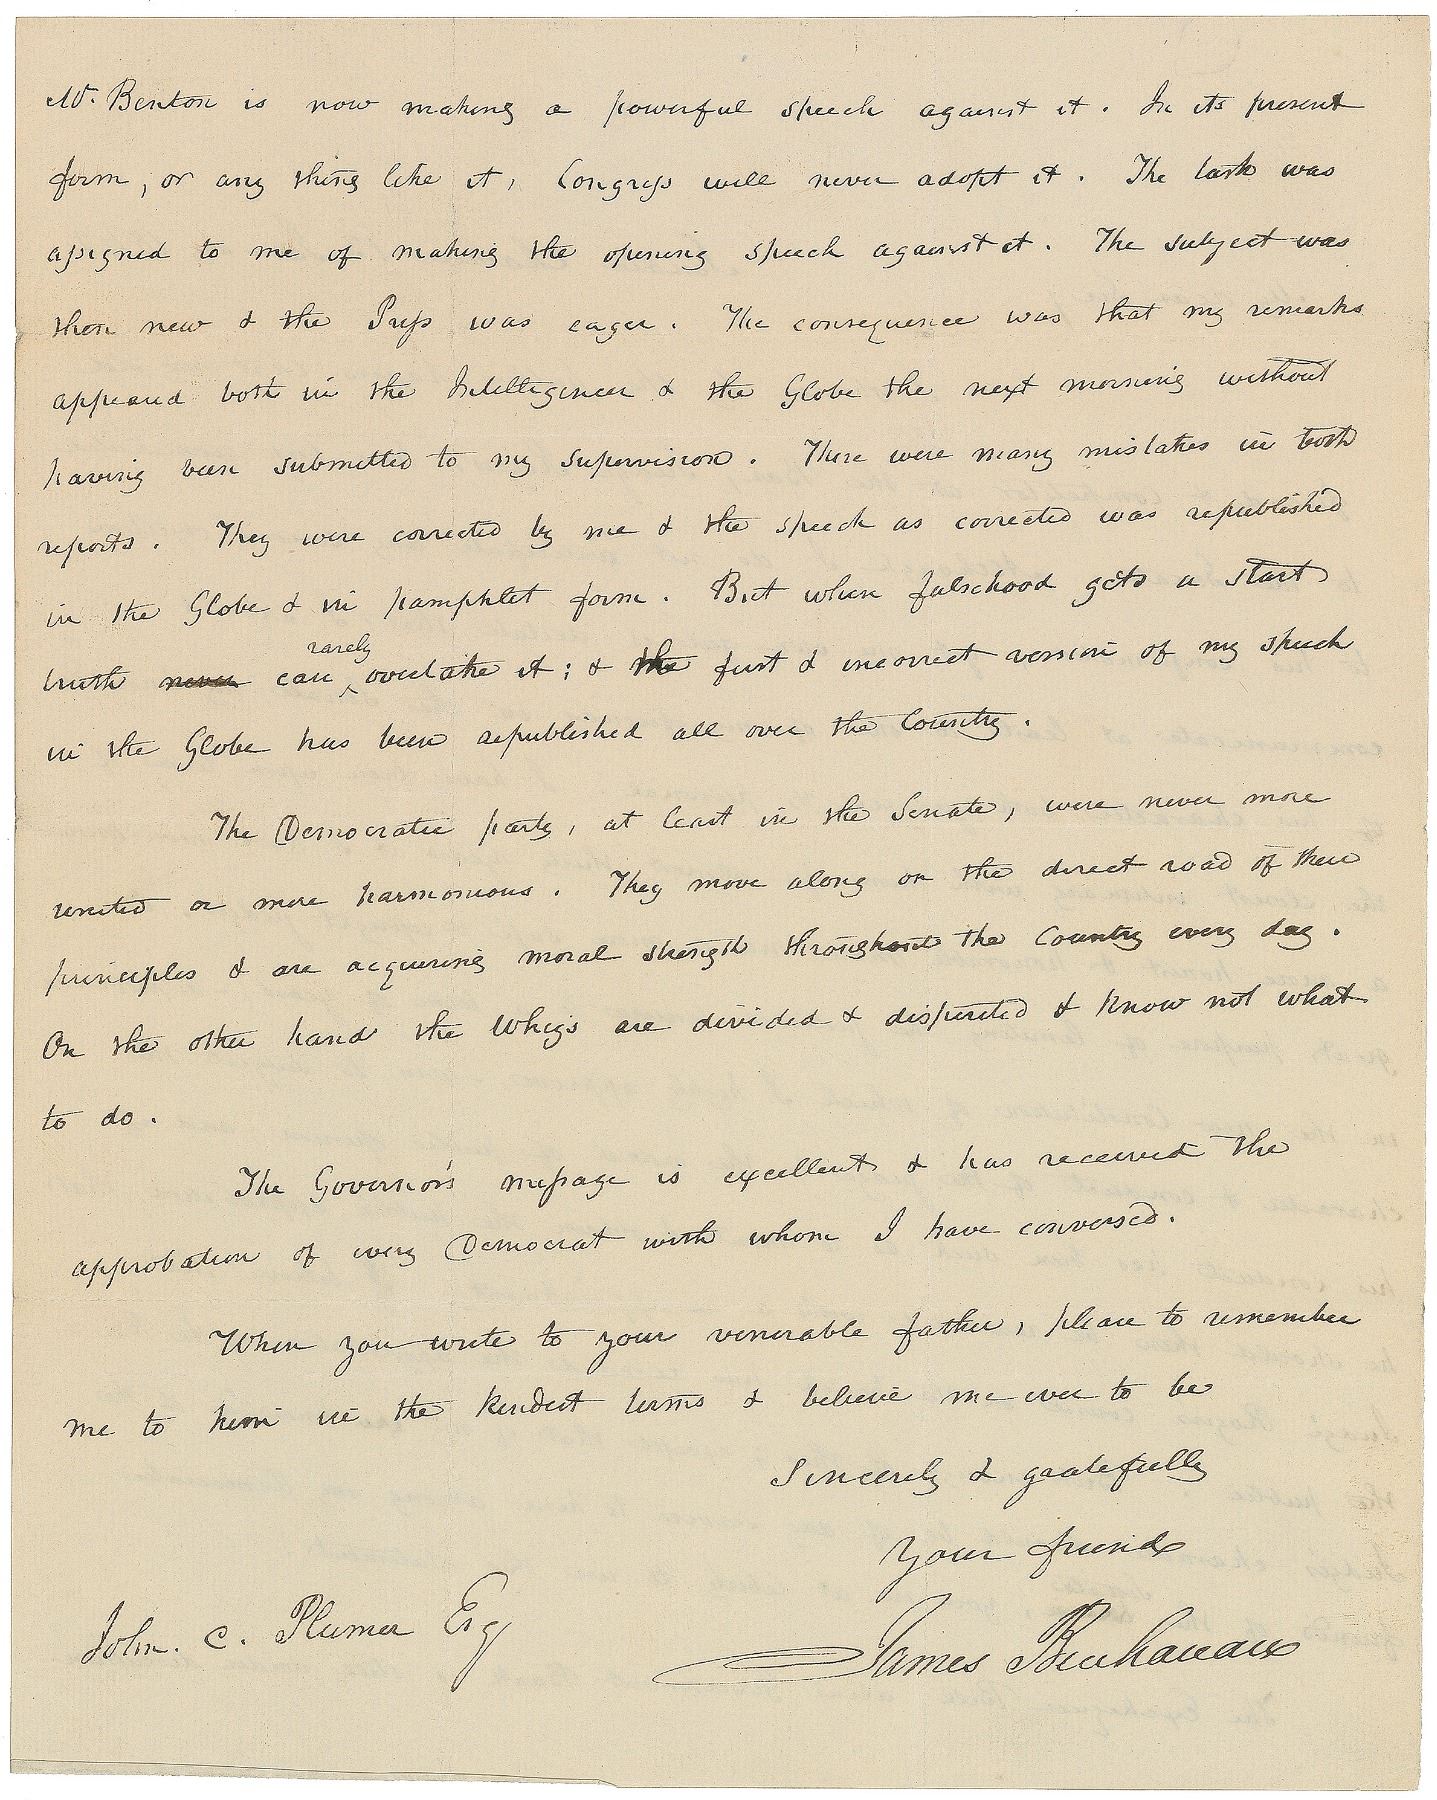 Mr. Benton is now making a powerful speech against it. In its present
form, or any thing like it, Congress will never adopt it. The task was
assigned to me of making the opening speech against it. The subject was
then new & the Press was eager. The consequence was that my remarks
appeared both in the Intelligencer & the Globe the next morning without
having been submitted to my supervision. There were many mistakes in both
reports. They were corrected by me & the speech as corrected was republished
in the Globe & in pamphlet form. But when falsehood gets a start
truth never can rarely overtake it; & the first & incorrect version of my speech
in the Globe has been republished all over the Country.
The Democratic party, at least in the Senate, were never more
united or more harmonious. They move along on the direct road of their
principles & are acquiring moral strength throughout the Country every day.
On the other hand the Whigs are divided & dispirited & know not what
to do.
The Governor's message is excellent & has received the
approbation of every Democrat with whom I have conversed.
When you write to your venerable father, please to remember
me to him in the kindest terms & believe me ever to be
Sincerely & gratefully
Your friend
James Buchanan
John. C. Plumer Esq